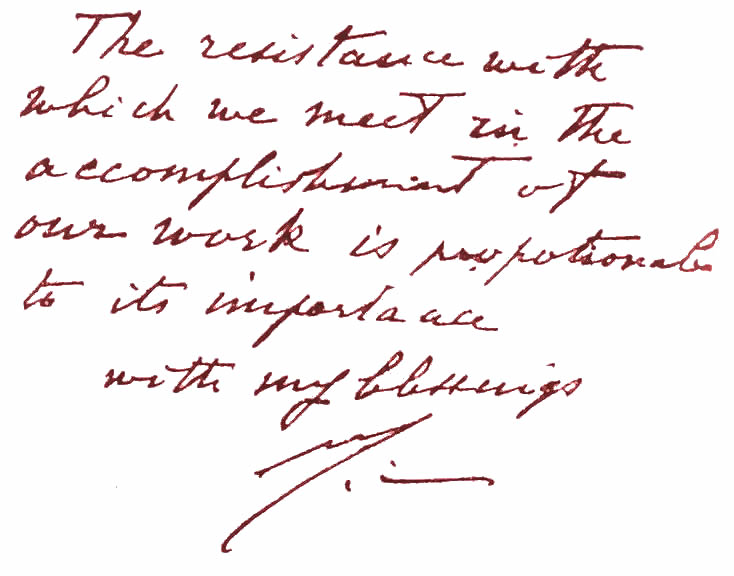 The resistance with
which we meet in the
accomplishment of
our work is propotional
to its importance
with my blessings